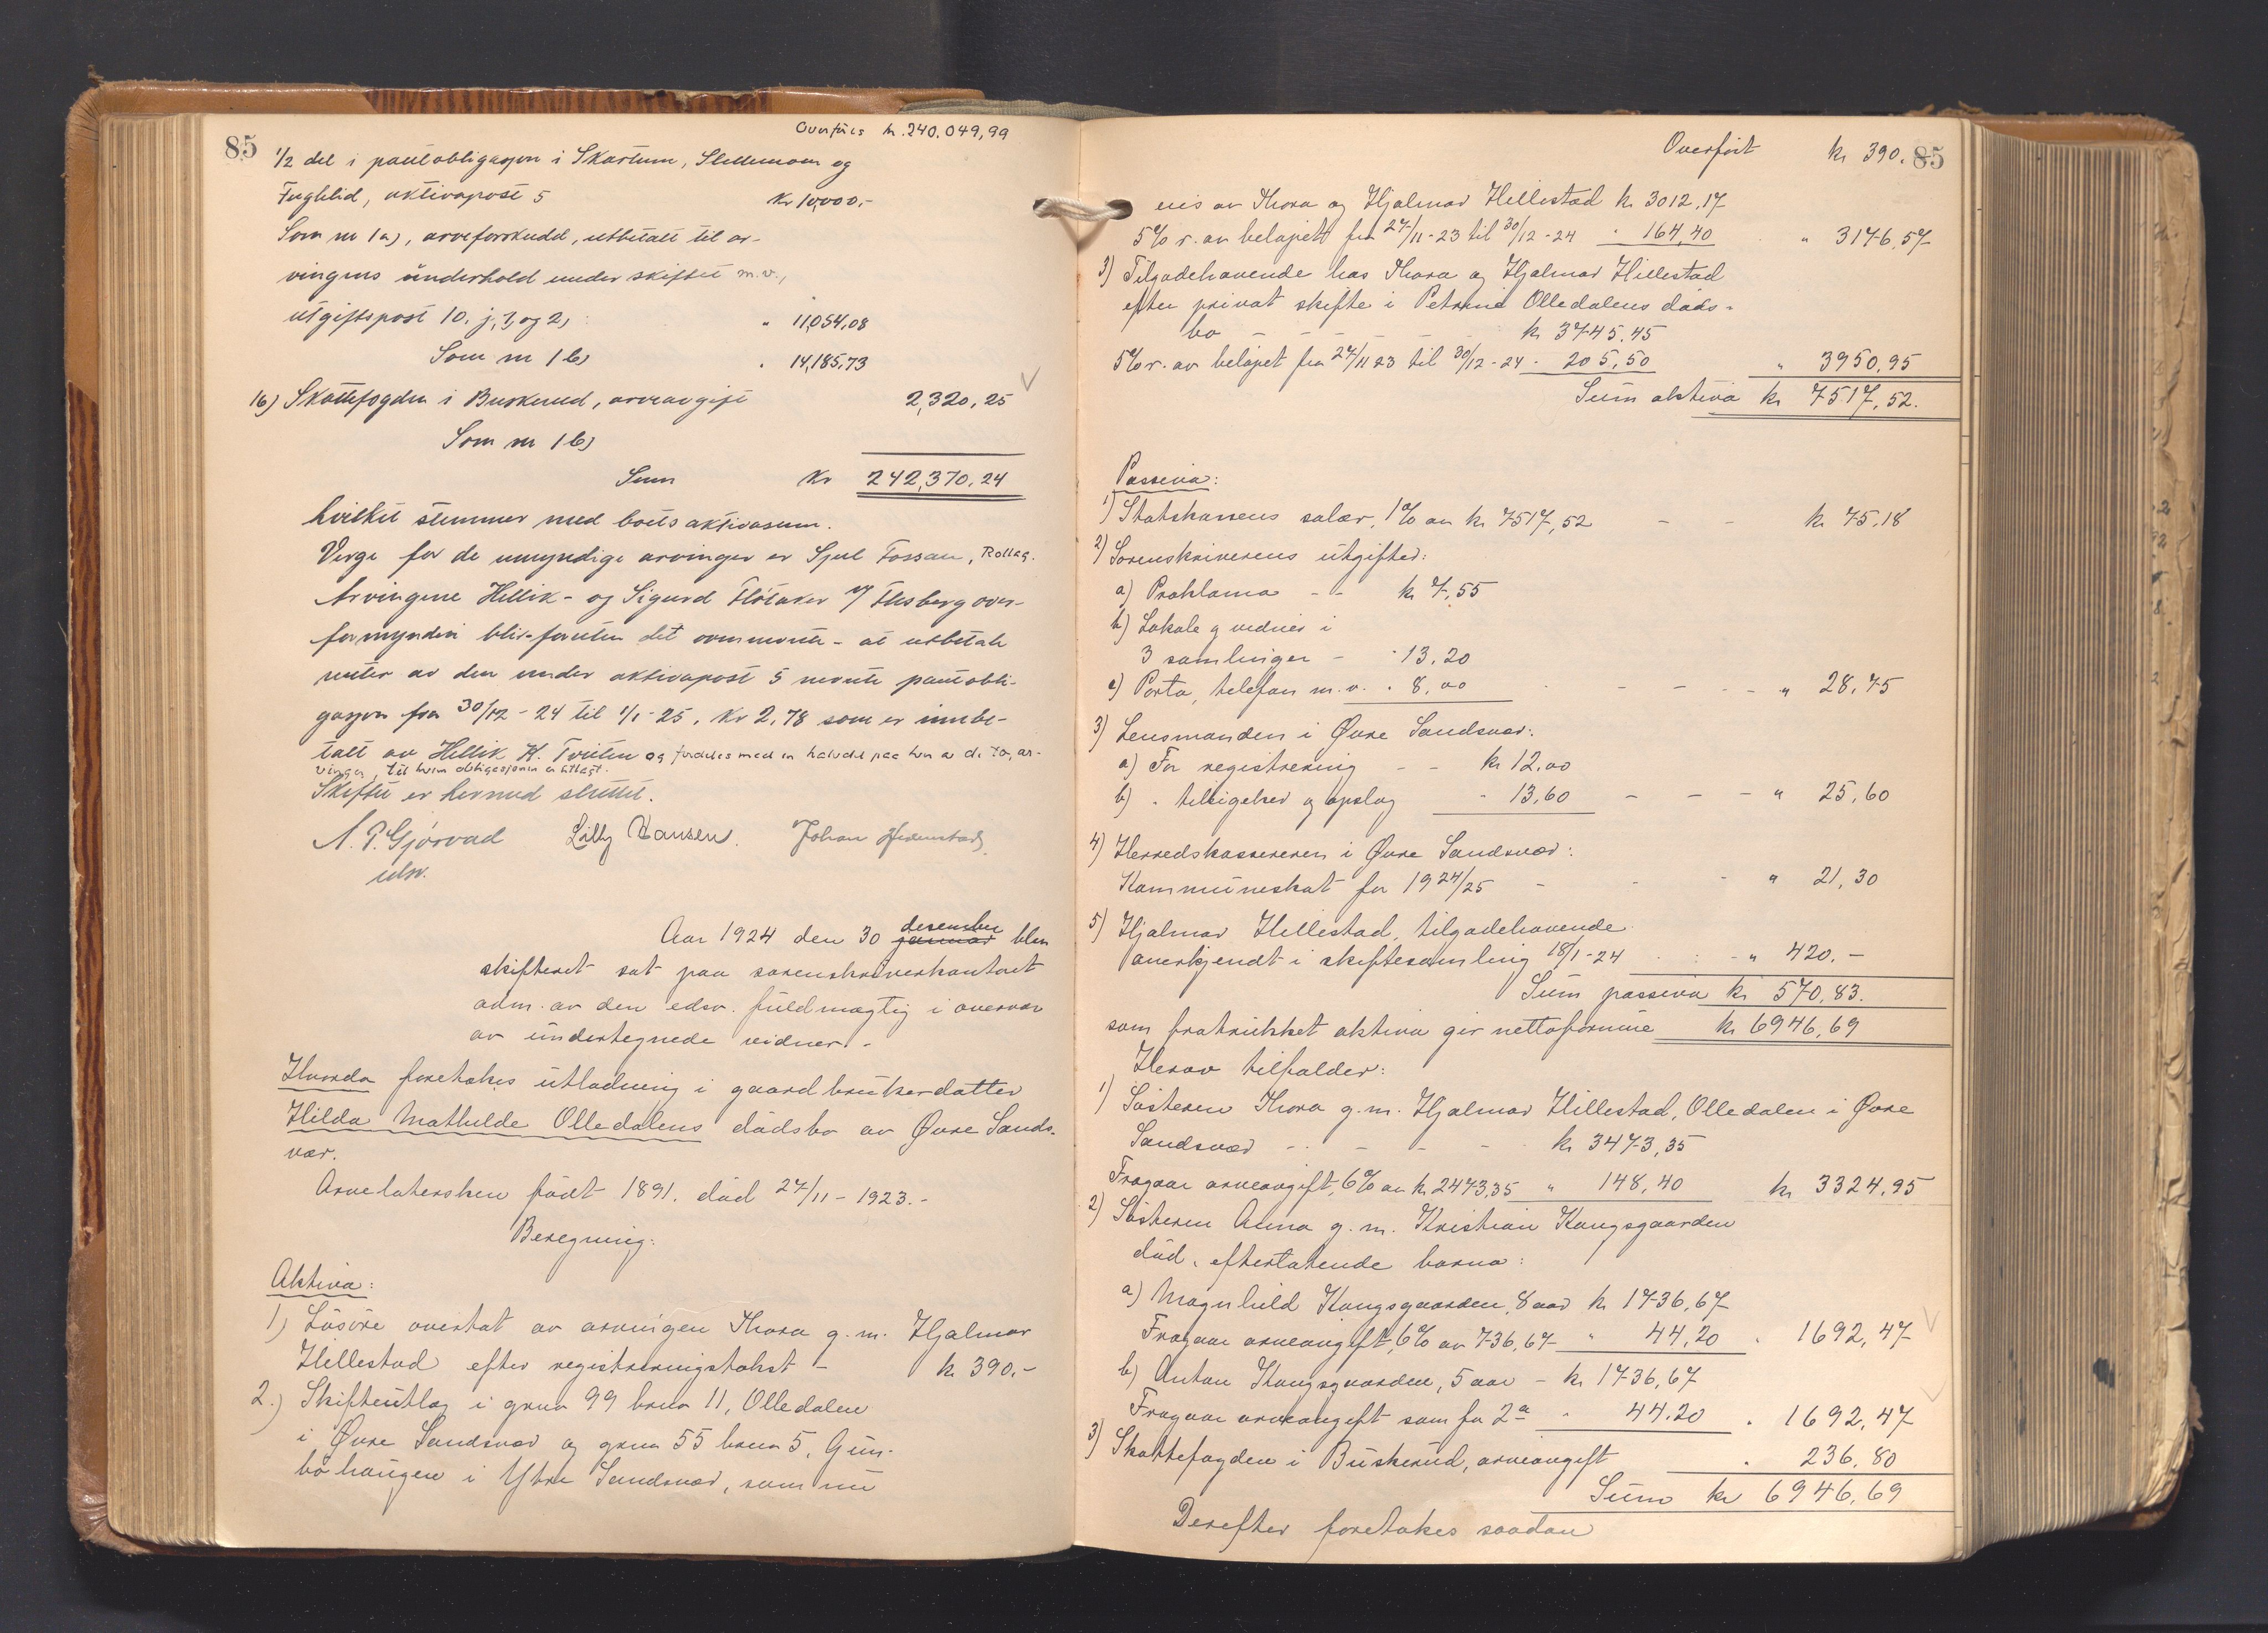 85
Overføres kr. 240.049,99
1/2 del i pantobligasjon i Skartum, Slettemoen og
Fuglelid, aktivapost 5 kr 10,000.-
Som nr 1 a), arveforskudd, utbetalt til ar-
vingens underhold under skiftet m.v.,
utgiftspost 10. j, 1, og 2, " 11,054,08
Som nr 1 b) " 14,185,73
16) Skattefogden i Buskerud, arveavgift 2,320,25
Som nr 1 b)
Sum kr 242,370.24
hvilket stemmer med boets aktivasum.
Verge for de umyndige arvinger er Sjul Fossan, Rollag.
Arvingene Hellik- og Sigurd Fløtaker v/ Flesberg over-
formynderi blir-foruten det ovennevnte- at utbetale
renter av den under aktivapost 5 nevnte pantobli-
gasjon fra 30/12-24 til 1/1-25, kr 2,78 som er innbe-
talt av Hellik H. Tveiten og fordeles med en halvdel paa hver av de to ar-
vinger, til hvem obligasjonen er utlagt.
Skiftet er hermed sluttet.
N. P. Gjørvad Lilly Hansen. Johan
edsv.
Aar 1924 den 30 januar desember blev
skifteret sat paa sorenskriverkontoret
adm. av den edsv. fuldmægtig i overvær
av undertegnede vidner. -
Hvorda foretokes utlodning i gaardbrukerdatter
Hilda Mathilde Olledalens dødsbo av Øvre Sands-
vær.
Arvelatersken født 1891. død 27/11-1923. -
Beregning:
Aktiva:
1) Løsøre overtat av arvingen Thora g. m. Hjalmar
Hellestad efter registreringstakst - kr 390.-
2.) Skifteutlæg i grnr 99 brnr 11, Olledalen
i Øvre Sandsvær og grnr 55 brnr 5, Gun-
bøhaugen i Ytre Sandsvær, som nu
Overført kr 390. 85
eies av Thora og Hjalmar Hillestad kr 3012,17
5% r. av beløpet fra 27/11-23 til 30/12-24 " 164,40 " 3176,57
3) Tilgodehavende hos Thora og Hjalmar Hillestad
efter privat skifte i Petrine Olledalens døds-
bo - - - - kr 3745,45
5% r. av beløpet fra 27/11 23 til 30/12-24 " 205,50 " 3950,95
Sum aktiva kr 7517,52.
Passiva:
1) Statskassens salær, 1% av kr 7517,52 - - kr 75,18
2) Sorenskriverens utgifter:
a) Proklama - - kr 7,55
b) Lokale g vidner i
3 samlinger - " 13,20
c) Porto, telefon m.v. " 8,00 - - - - " 28,75
3) Lensmanden i Øvre Sandsvær:
a) For registrering - - kr 12,00
b) " tilsigelser og opslag " 13,60 - - - " 25,60
4) Herredskassereren i Øvre Sandsvær:
Kommuneskat for 1924/25 - - - " 21,30
5) Hjalmar Hillestad, tilgodehavende
anerkjendt i skiftesamling 18/1-24 - - " 420.-
Sum passiva kr 570,83.
som fratrukket aktiva gir nettoformue kr 6946,69
Herav tilfalder:
1) Søsteren Thora g. m. Hjalmar Hillestad, Olledalen i Øvre
Sandsvær - - - - kr 3473,35
Fragaar arveavgift, 6% av kr 2473,35 " 148,40 kr 3324,95
2) Søsteren Anna g. m. Kristian Kongsgaarden
død, efterlatende barna:
a) Magnhild Kongsgaarden, 8 aar kr 1736,67
Fragaar arveavgift, 6% av 736,67 " 44,20 " 1692,47
b) Anton Kongsgaarden, 5 aar - kr 1736,67
Fragaar arveavgift som for 2a " 44,20 " 1692,47
3) Skattefogden i Buskerud, arveavgift " 236,80
Sum kr 6946,69
Derefter foretokes saadan